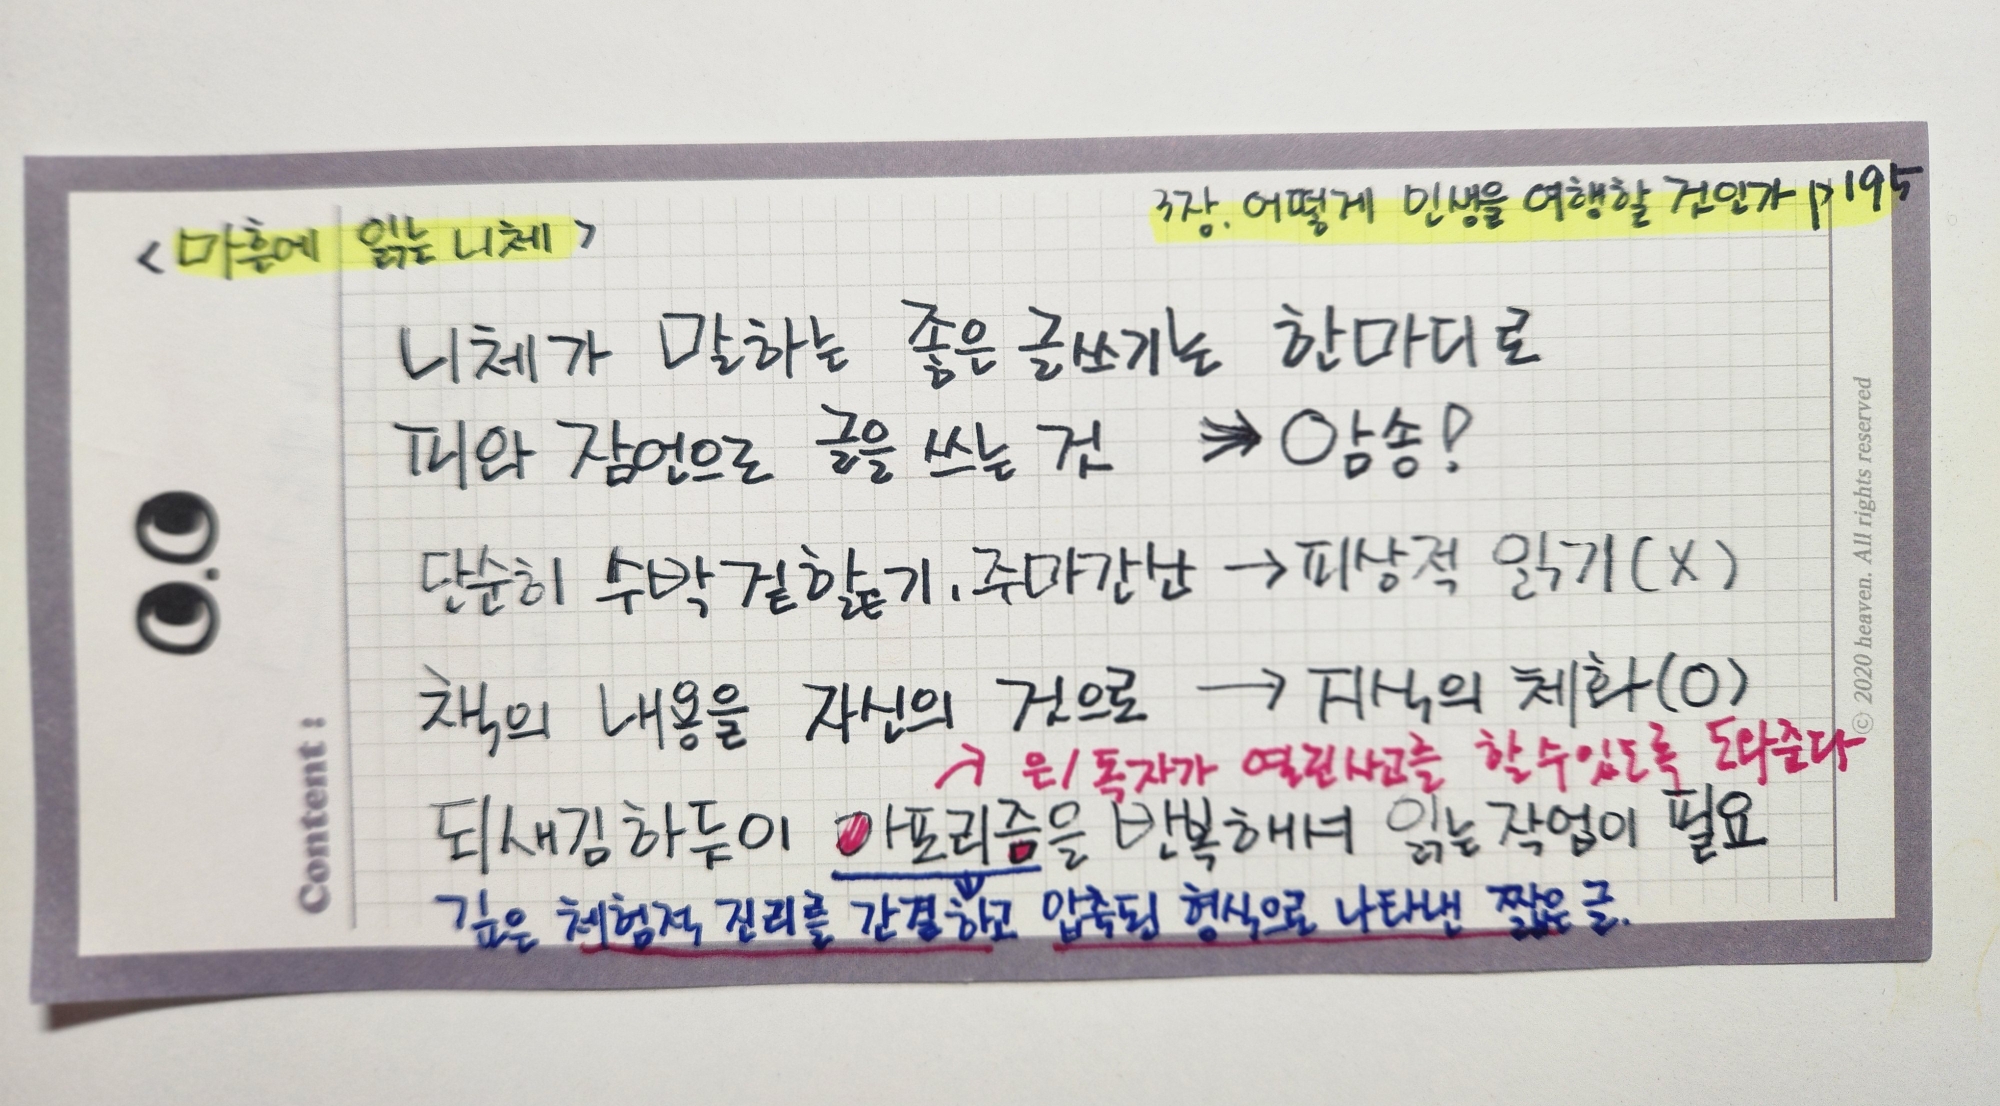 <마흔에 읽는 니체>
3장. 어떻게 인생을 여행할 것인가 p195
니체가 말하는 좋은 글쓰기는 한마디로
피와 잠언으로 글을 쓰는 것 ⇛ 암송!
단순히 수박 겉핥기, 주마간산 → 피상적 읽기(X)
책의 내용을 자신의 것으로 → 지식의 체화(O)
↗ 은/독자가 열린사고를 할 수 있도록 도와준다
되새김하듯이 아포리즘을 반복해서 읽는 작업이 필요
깊은 체험적 진리를 간결하고 압축된 형식으로 나타낸 짧은 글.
Content :
© 2020 heaven. All rights reserved